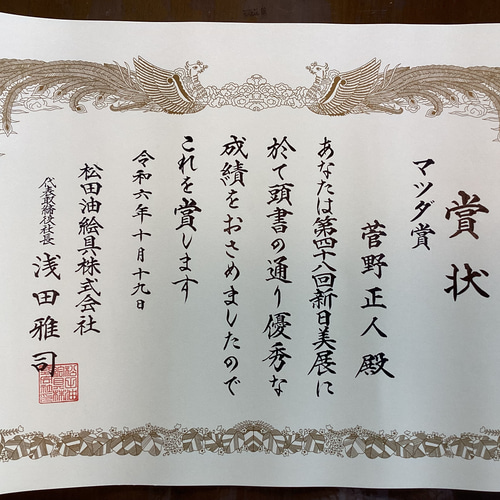 賞状
マツダ賞
菅野正人殿
あなたは第四十八回新日美展に
於て頭書の通り優秀な
成績をおさめましたので
これを賞します
令和六年十月十九日
松田油絵具株式会社
代表取締役社長 浅田雅司